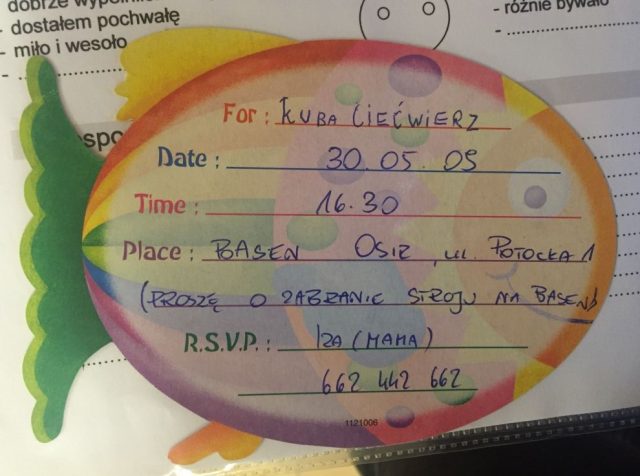 dobrze wypełni
- dostałem pochwałę
- miło i wesoło
- różnie bywało
-
-
spo
For : KUBA CIEĆWIERZ
Date : 30.05.09
Time : 16.30
Place : BASEN OSIR, ul. POTOCKA 1
(PROSZĘ O ZABRANIE STROJU NA BASEN)
R.S.V.P. : IZA (MAMA)
662 442 662
1121006